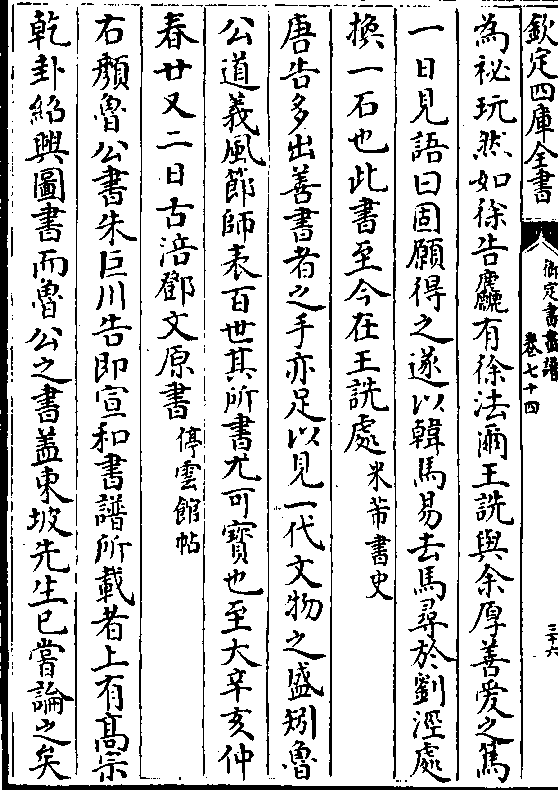 欽定四庫全書
御定書畫譜
卷七十四
三十六
為祕玩然如徐告麤有徐法爾王詵與余厚善愛之篤
一日見語曰固願得之遂以韓馬易去馬尋於劉涇處
換一石也此書至今在王詵處米芾書史
唐告多出善書者之手亦足以見一代文物之盛矧魯
公道義風節師表百世其所書尤可寶也至大辛亥仲
春廿又二日古涪鄧文原書停雲館帖
右顏魯公書朱巨川告即宣和書譜所載者上有髙宗
乾卦紹興圖書而魯公之書蓋東坡先生已嘗論之矣